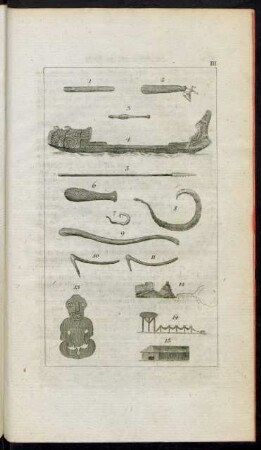 III
1
2
3
4
5
6
7
8
9
10
11
12
13
14
15